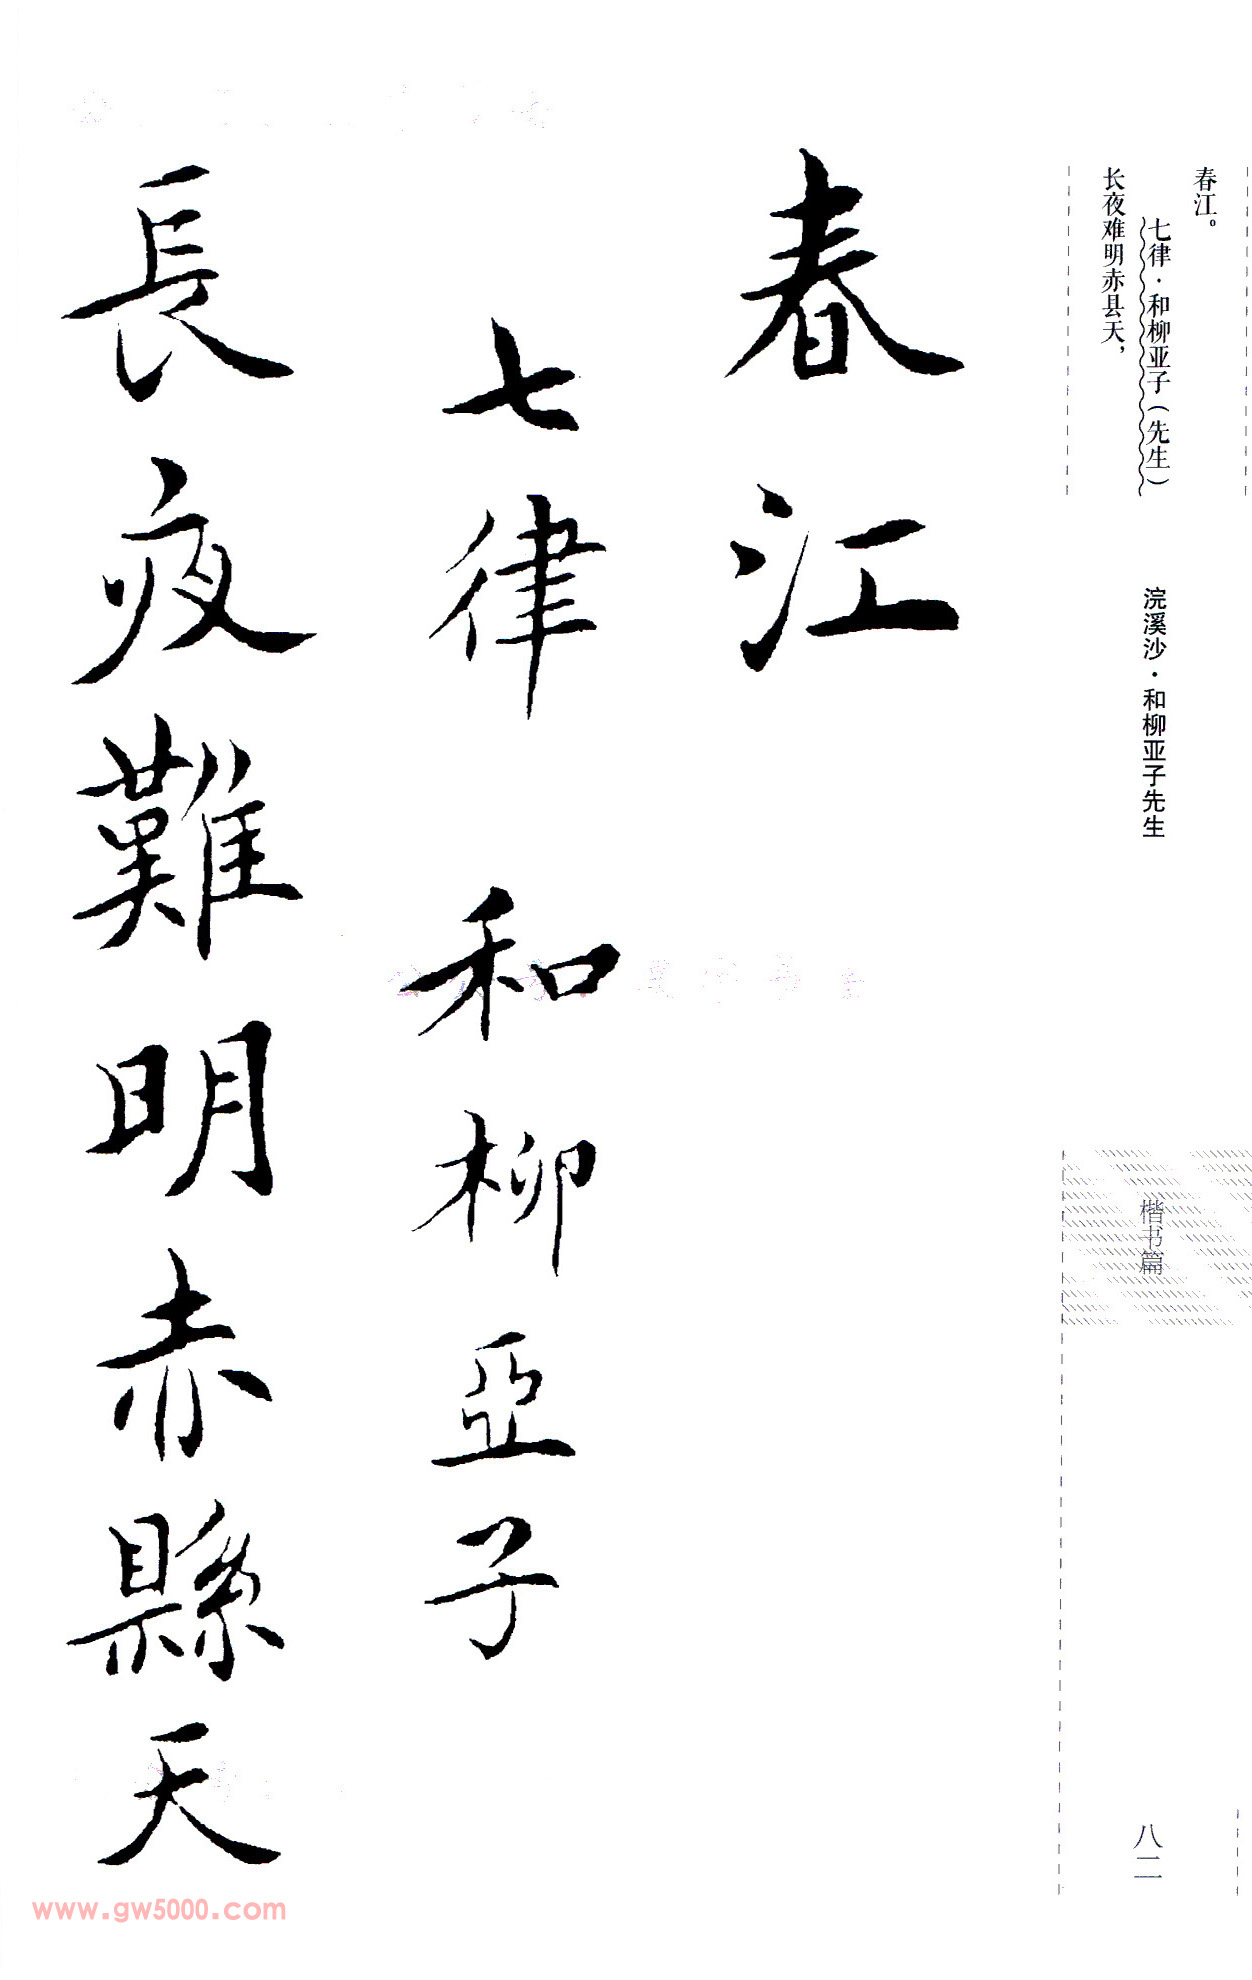 春江。
七律·和柳亚子（先生）
长夜难明赤县天，
浣溪沙·和柳亚子先生
楷书篇
八二
春江
七律 和柳亞子
長夜難明赤縣天
www.gw5000.com